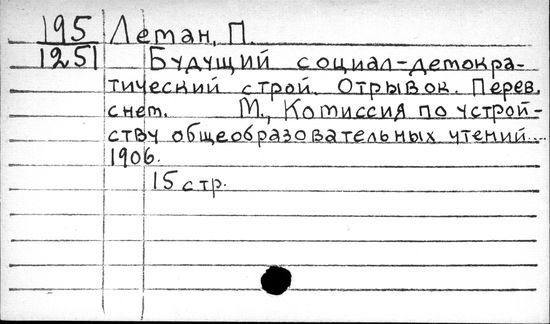 195 Леман, П.
1251 Будущий социал-демокра-
тический строй. Отрывок. Перев.
с нем. М., Комиссия по устрой-
ству общеобразовательных чтений...
1906.
15 стр.